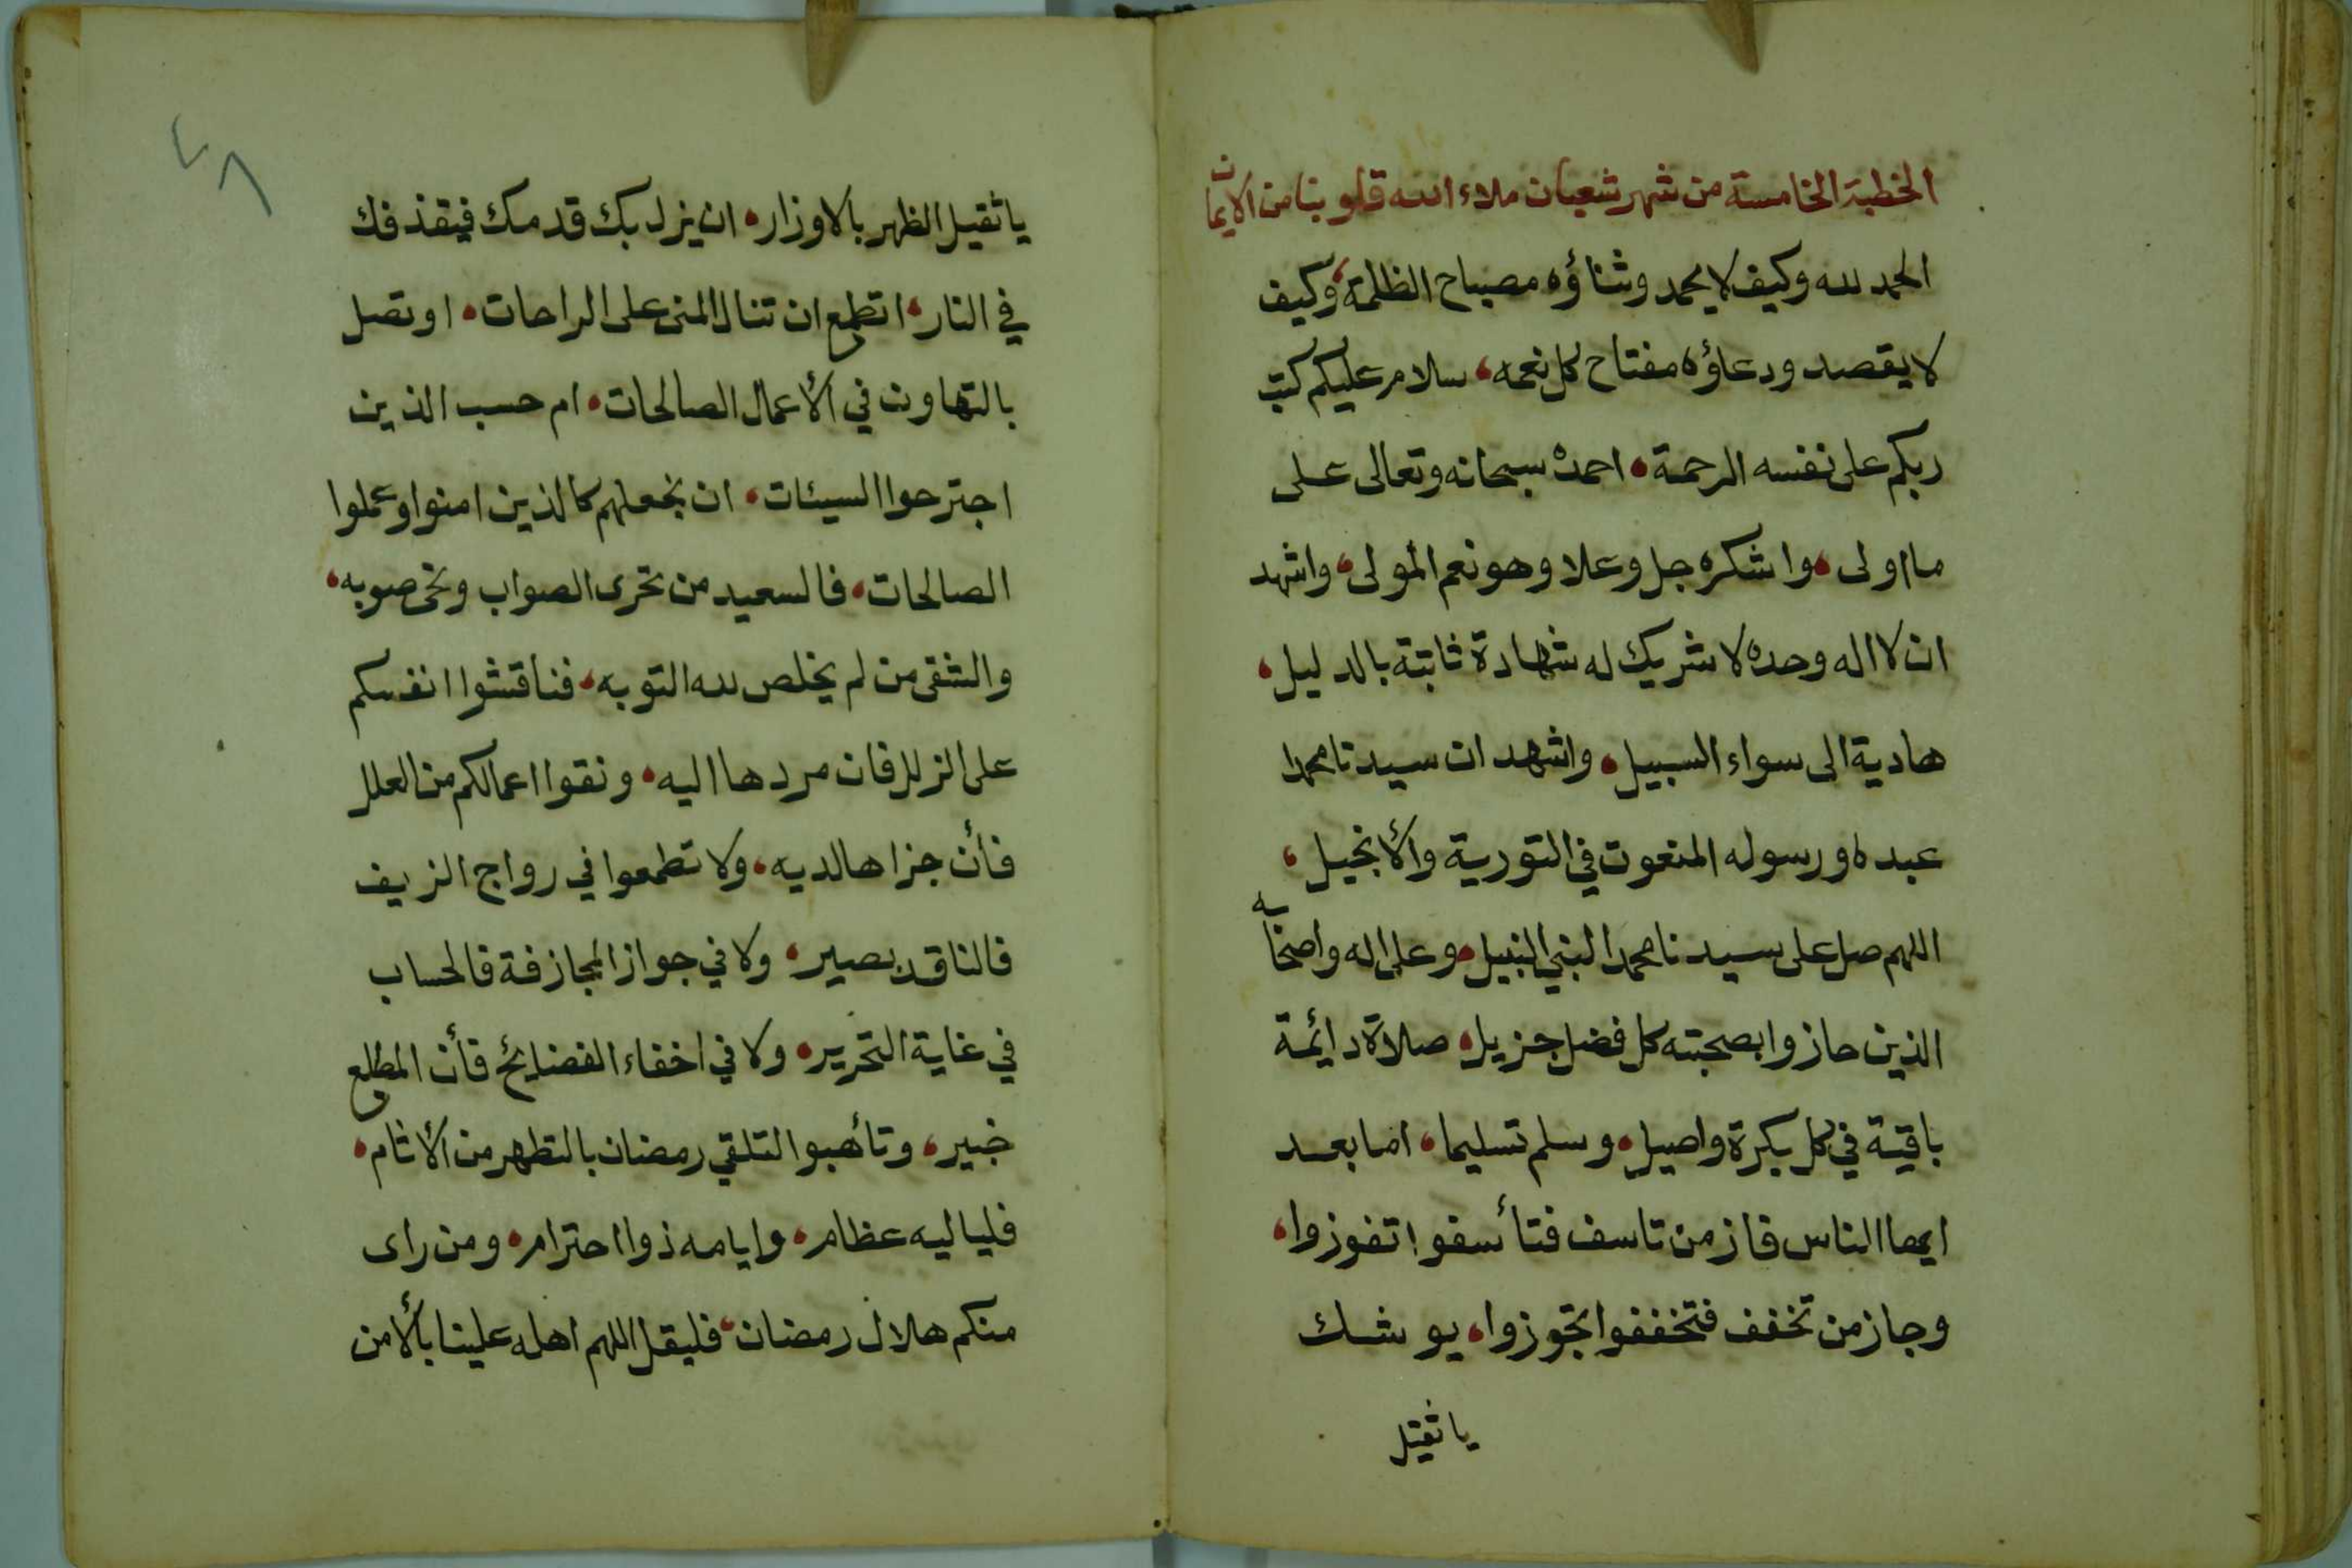 الخطبة الخامسة من شهر شعبان ملاء الله قلوبنا من الايمان
الحمد لله وكيف لا يحمد وثناؤه مصباح الظلمة، وكيف
لا يقصد ودعاؤه مفتاح كل نعمه، سلام عليكم كتب
ربكم على نفسه الرحمة، احمده سبحانه وتعالى على
ما اولى، واشكره جل وعلا وهو نعم المولى، واشهد
ان لا اله وحده لا شريك له شهادة ثابتة بالدليل،
هادية الى سواء السبيل، واشهد ان سيدنا محمدا
عبده ورسوله المنعوت في التورية والأنجيل،
اللهم صل على سيدنا محمد النبي النبيل، وعلى اله واصحابه
الذين حازوا بصحبته كل فضل جزيل، صلاة دائمة
باقية في كل بكرة واصيل، وسلم تسليما، اما بعد
ايها الناس فاز من تاسف فتأسفوا تفوزوا،
وجاز من تخفف فتخففوا تجوزوا، يوشك
يا ثقيل
٤٨
يا ثقيل الظهر بالاوزار، ان يزل بك قدمك فيقذفك
في النار، اتطمع ان تنال المنى على الراحات، او تصل
بالتهاون في الأعمال الصالحات، ام حسب الذين
اجترحوا السيئات، ان نجعلهم كالذين امنوا وعملوا
الصالحات، فالسعيد من تحرى الصواب ونحى صوبه،
والشقى من لم يخلص لله التوبه، فناقشوا انفسكم
على الزلل فان مردها اليه، ونقوا اعمالكم من العلل
فأن جزاها لديه، ولا تطمعوا في رواج الزيف
فالناقد بصير، ولا في جواز المجازفة فالحساب
في غاية التحرير، ولا في اخفاء الفضايح فأن المطلع
خبير، وتأهبوا لتلقي رمضان بالتطهر من الأثام،
فلياليه عظام، وايامه ذوا احترام، ومن راى
منكم هلال رمضان، فليقل اللهم اهله علينا بالأمن